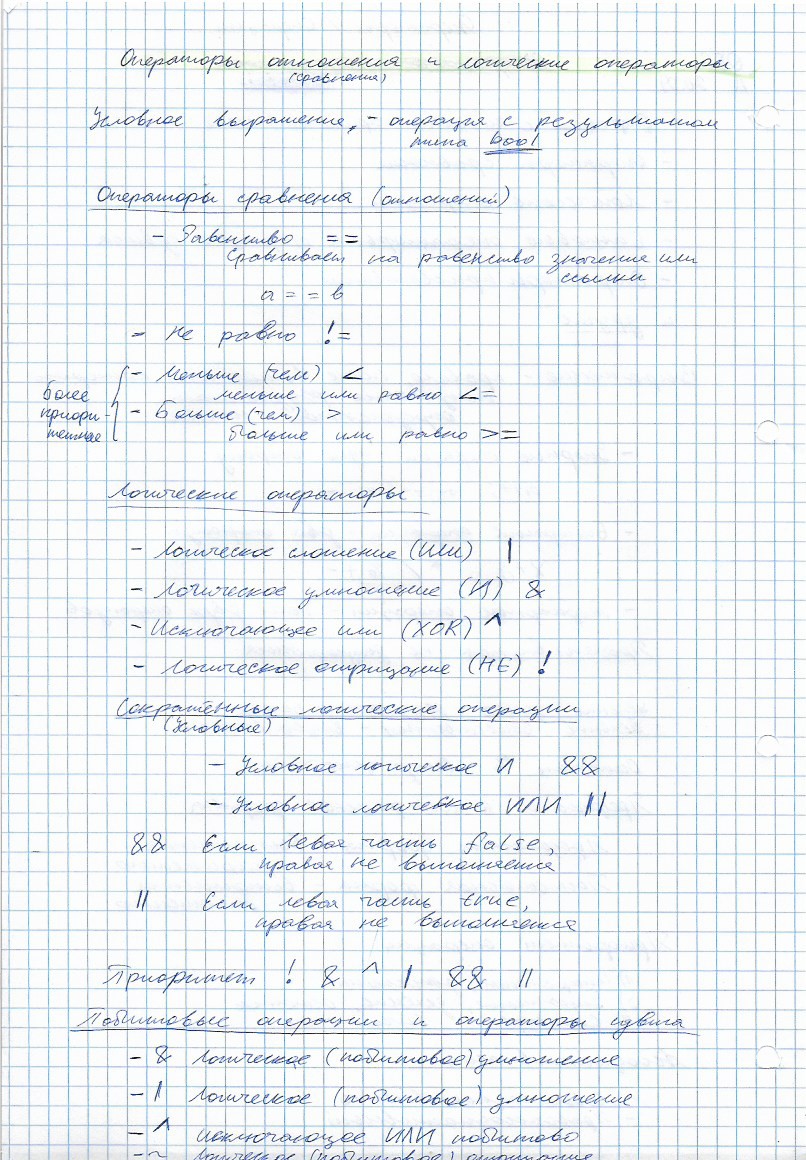 Операторы отношения и логические операторы
(сравнения)
Условное выражение, - операция с результатом
типа bool
Операторы сравнения (отношений)
- Равенство ==
Сравнивает на равенство значение или
ссылки
a == b
- Не равно !=
- Меньше (чем) <
меньше или равно <=
Более
приори-
тетные
- Больше (чем) >
больше или равно >=
Логические операторы
- Логическое сложение (ИЛИ) |
- Логическое умножение (И) &
- Исключающее или (XOR) ^
- Логическое отрицание (НЕ) !
Сокращённые логические операции
(Условные)
- Условное логическое И &&
- Условное логическое ИЛИ ||
&& Если левая часть false,
правая не выполняется
|| Если левая часть true,
правая не выполняется
Приоритет ! & ^ | && ||
Побитовые операции и операторы сдвига
- & логическое (побитовое) умножение
- | логическое (побитовое) умножение
- ^ исключающее ИЛИ побитово
- ~ логическое (побитовое)